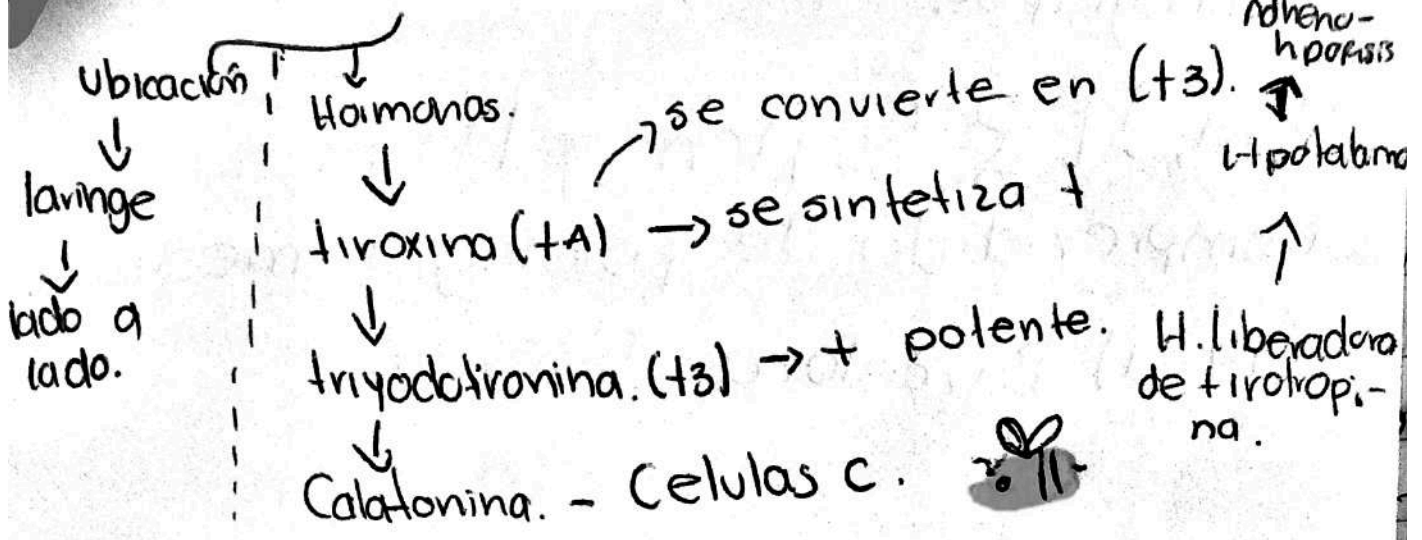 Ubicación
↓
laringe
↓
lado a
lado.
↓
Hormonas.
↓
tiroxina (t4) → se sintetiza +
↗ se convierte en (t3).
↓
triyodotironina. (t3) → + potente.
↓
Calatonina. - Celulas C.
Adheno-
hpofisis
↑
Hipotalamo
↑
H. liberadora
de tirotropi-
na.